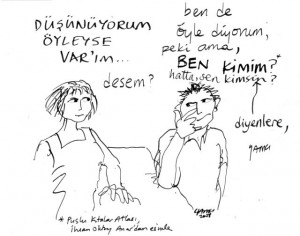 DÜŞÜNÜYORUM
ÖYLEYSE
VAR'IM...
desem?
ben de
öyle diyorum,
peki ama,
BEN KİMİM?*
hatta, sen kimsin?
diyenlere,
* Puslu Kıtalar Atlası,
İhsan Oktay Anar'dan esinle